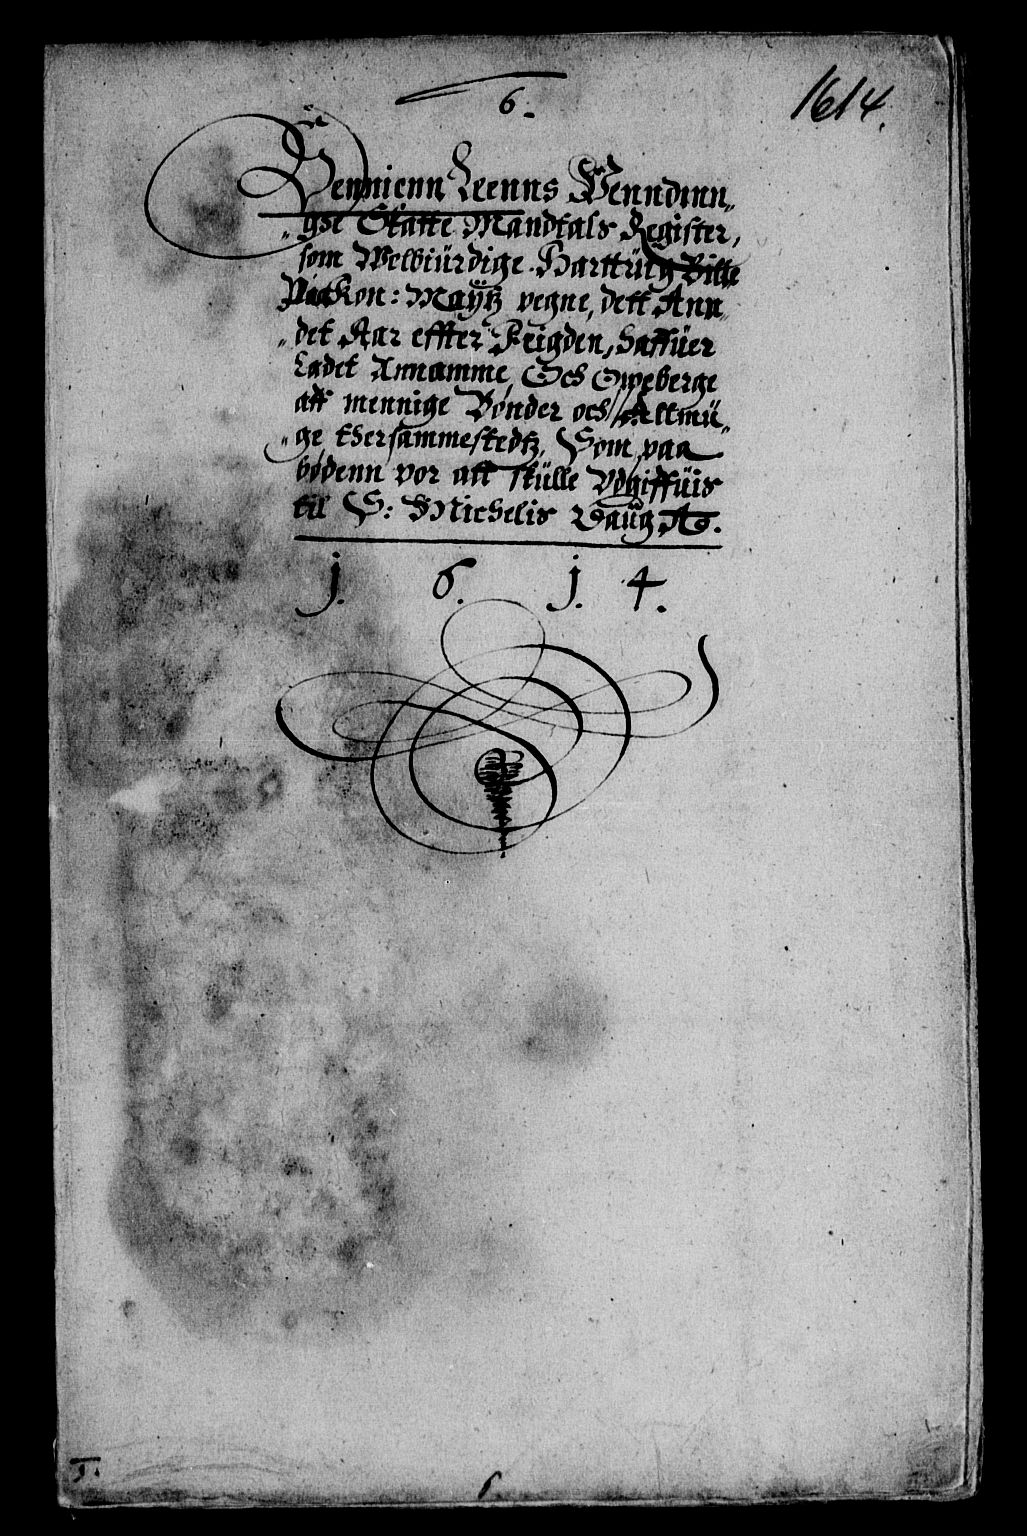 6.
1614.
Hennienn Leenns Penndinn„
„gse Skatte Mandtals Register,
som Welbiürdige Harttüig Bille
Paa Kon: Maÿtz vegne, dett Ann„
„det Aar effter Feigden, haffüer
Ladet Annamme, Och Opeberge
aff mennige Bønder och Allmü„
„ge thersammestedtz, Som paa
bødenn vor att skülle Vdgiffüis
til S: Michelis Daüg Ao.
j. 6. j. 4.